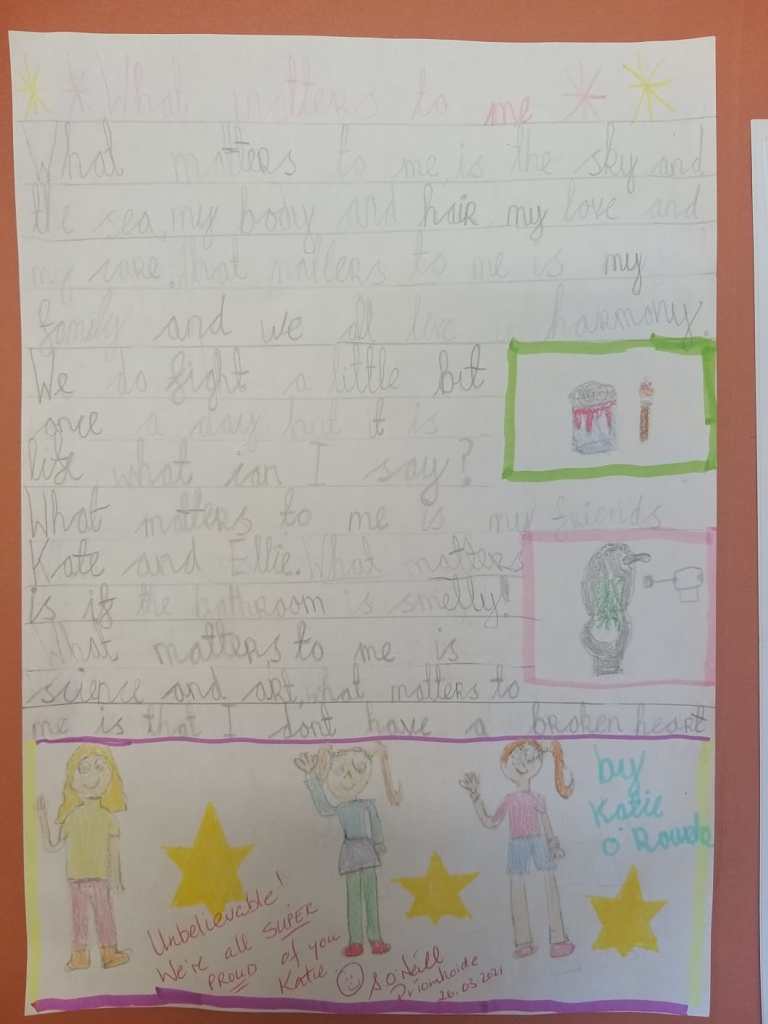 What matters to me
What matters to me is the sky and
the sea, my body and hair my love and
my care. What matters to me is my
family and we all live in harmony.
We do fight a little bit
once a day but it is
life what can I say?
What matters to me is my friends
Kate and Ellie. What matters
is if the bathroom is smelly!
What matters to me is
science and art, what matters to
me is that I dont have a broken heart
by
Katie
O'Rowde
Unbelievable!
We're all SUPER
PROUD of you
Katie
S.O'Neill
Príomhoide
26.03.2021